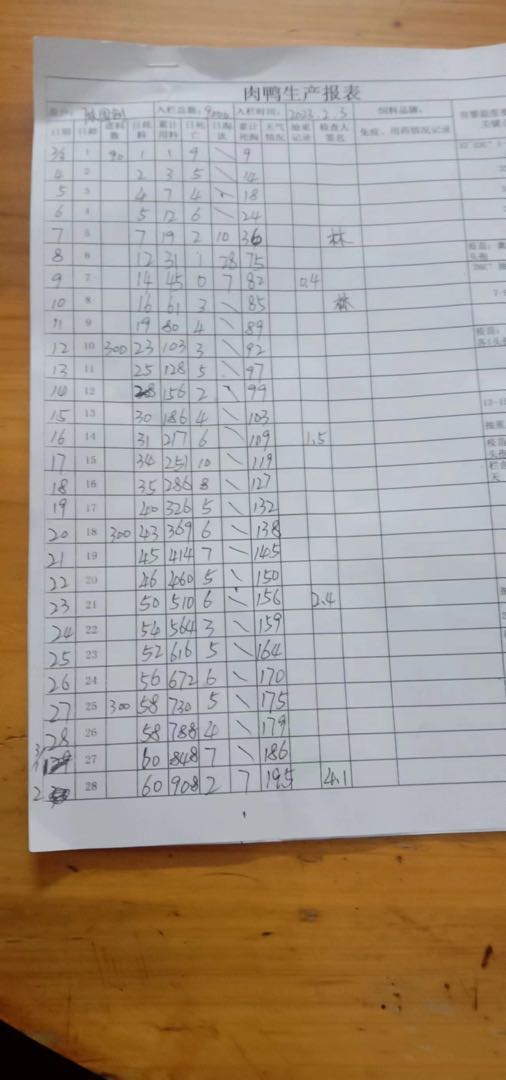 肉鸭生产报表
入栏总数: 9000 入栏时间: 2023.2.3 饲料品牌:
日期 日龄 进料数 日耗料 累计用料 日死亡 日淘汰 累计死淘 天气情况 地重记录 检查人签名 免疫、用药情况记录
3/2 1 90 1 1 9 \ 9
4 2 2 3 5 \ 14
5 3 4 7 4 \ 18
6 4 5 12 6 \ 24
7 5 7 19 2 10 36 林
8 6 12 31 1 28 75
9 7 14 45 0 7 82 0.4
10 8 16 61 3 \ 85 林
11 9 19 80 4 \ 89
12 10 300 23 103 3 \ 92
13 11 25 128 5 \ 97
14 12 28 156 2 \ 99
15 13 30 186 4 \ 103
16 14 31 217 6 \ 109 1.5
17 15 34 251 10 \ 119
18 16 35 286 8 \ 127
19 17 40 326 5 \ 132
20 18 300 43 369 6 \ 138
21 19 45 414 7 \ 145
22 20 46 460 5 \ 150
23 21 50 510 6 \ 156 2.4
24 22 54 564 3 \ 159
25 23 52 616 5 \ 164
26 24 56 672 6 \ 170
27 25 300 58 730 5 \ 175
28 26 58 788 4 \ 179
3/1 27 60 848 7 \ 186
2 28 60 908 2 7 195 4.1